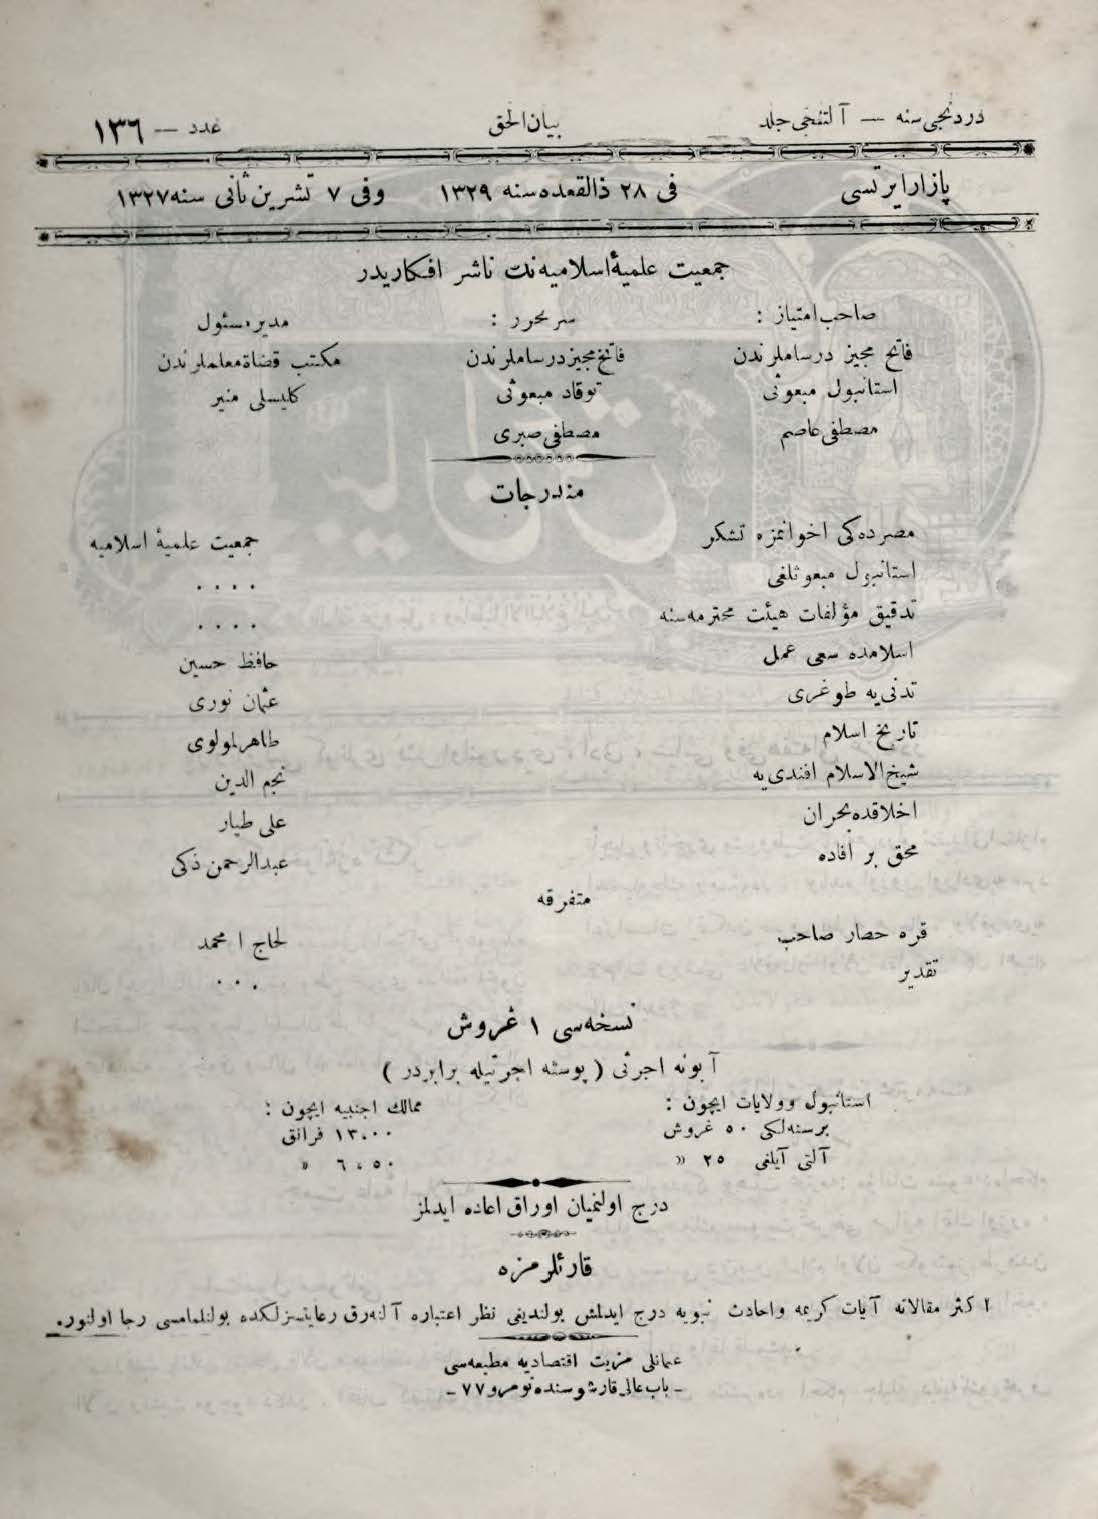 دردنجی سنه — آلتنجی جلد بیان الحق عدد — ١٣٦
پازار ایرتسی فی ٢٨ ذالقعده سنه ١٣٢٩ وفی ٧ تشرین ثانی سنه ١٣٢٧
جمعیت علمیهٔ اسلامیه نك ناشر افکاریدر
صاحب امتیاز : سر محرر : مدیر مسئول
فاتح مجیز درساملرندن فاتح مجیز درساملرندن مکتب قضاة معلملرندن
استانبول مبعوثی توقاد مبعوثی کلیسلی منیر
مصطفی عاصم مصطفی صبری
مندرجات
مصرده کی اخوانمزه تشکر جمعیت علمیهٔ اسلامیه
استانبول مبعوثلغی . . . .
تدقیق مؤلفات هیئت محترمه سنه . . . .
اسلامده سعی عمل حافظ حسین
تدنی یه طوغری عثمان نوری
تاریخ اسلام طاهر المولوی
شیخ الاسلام افندی یه نجم الدین
اخلاقده بحران علی طیار
محق بر افاده عبدالرحمن ذکی
متفرقه
قره حصار صاحب لحاج ا محمد
تقدیر . . .
نسخه سی ١ غروش
آبونه اجرتی ( پوسته اجرتیله برابردر )
استانبول وولایات ایچون : ممالك اجنبیه ایچون :
برسنه لکی ٥٠ غروش ١٣،٠٠ فرانق
آلتی آیلغی ٢٥ » ٦،٥٠ »
درج اولنمیان اوراق اعاده ایدلمز
قارئلرمزه
اکثر مقالاته آیات کریمه واحادث نبویه درج ایدلمش بولندیغی نظر اعتباره آلنه رق رعایتسزلکده بولنلمامسی رجا اولنور.
عثمانلی مزیت اقتصادیه مطبعه سی
- باب عالی قارشوسنده نومرو ٧٧ -